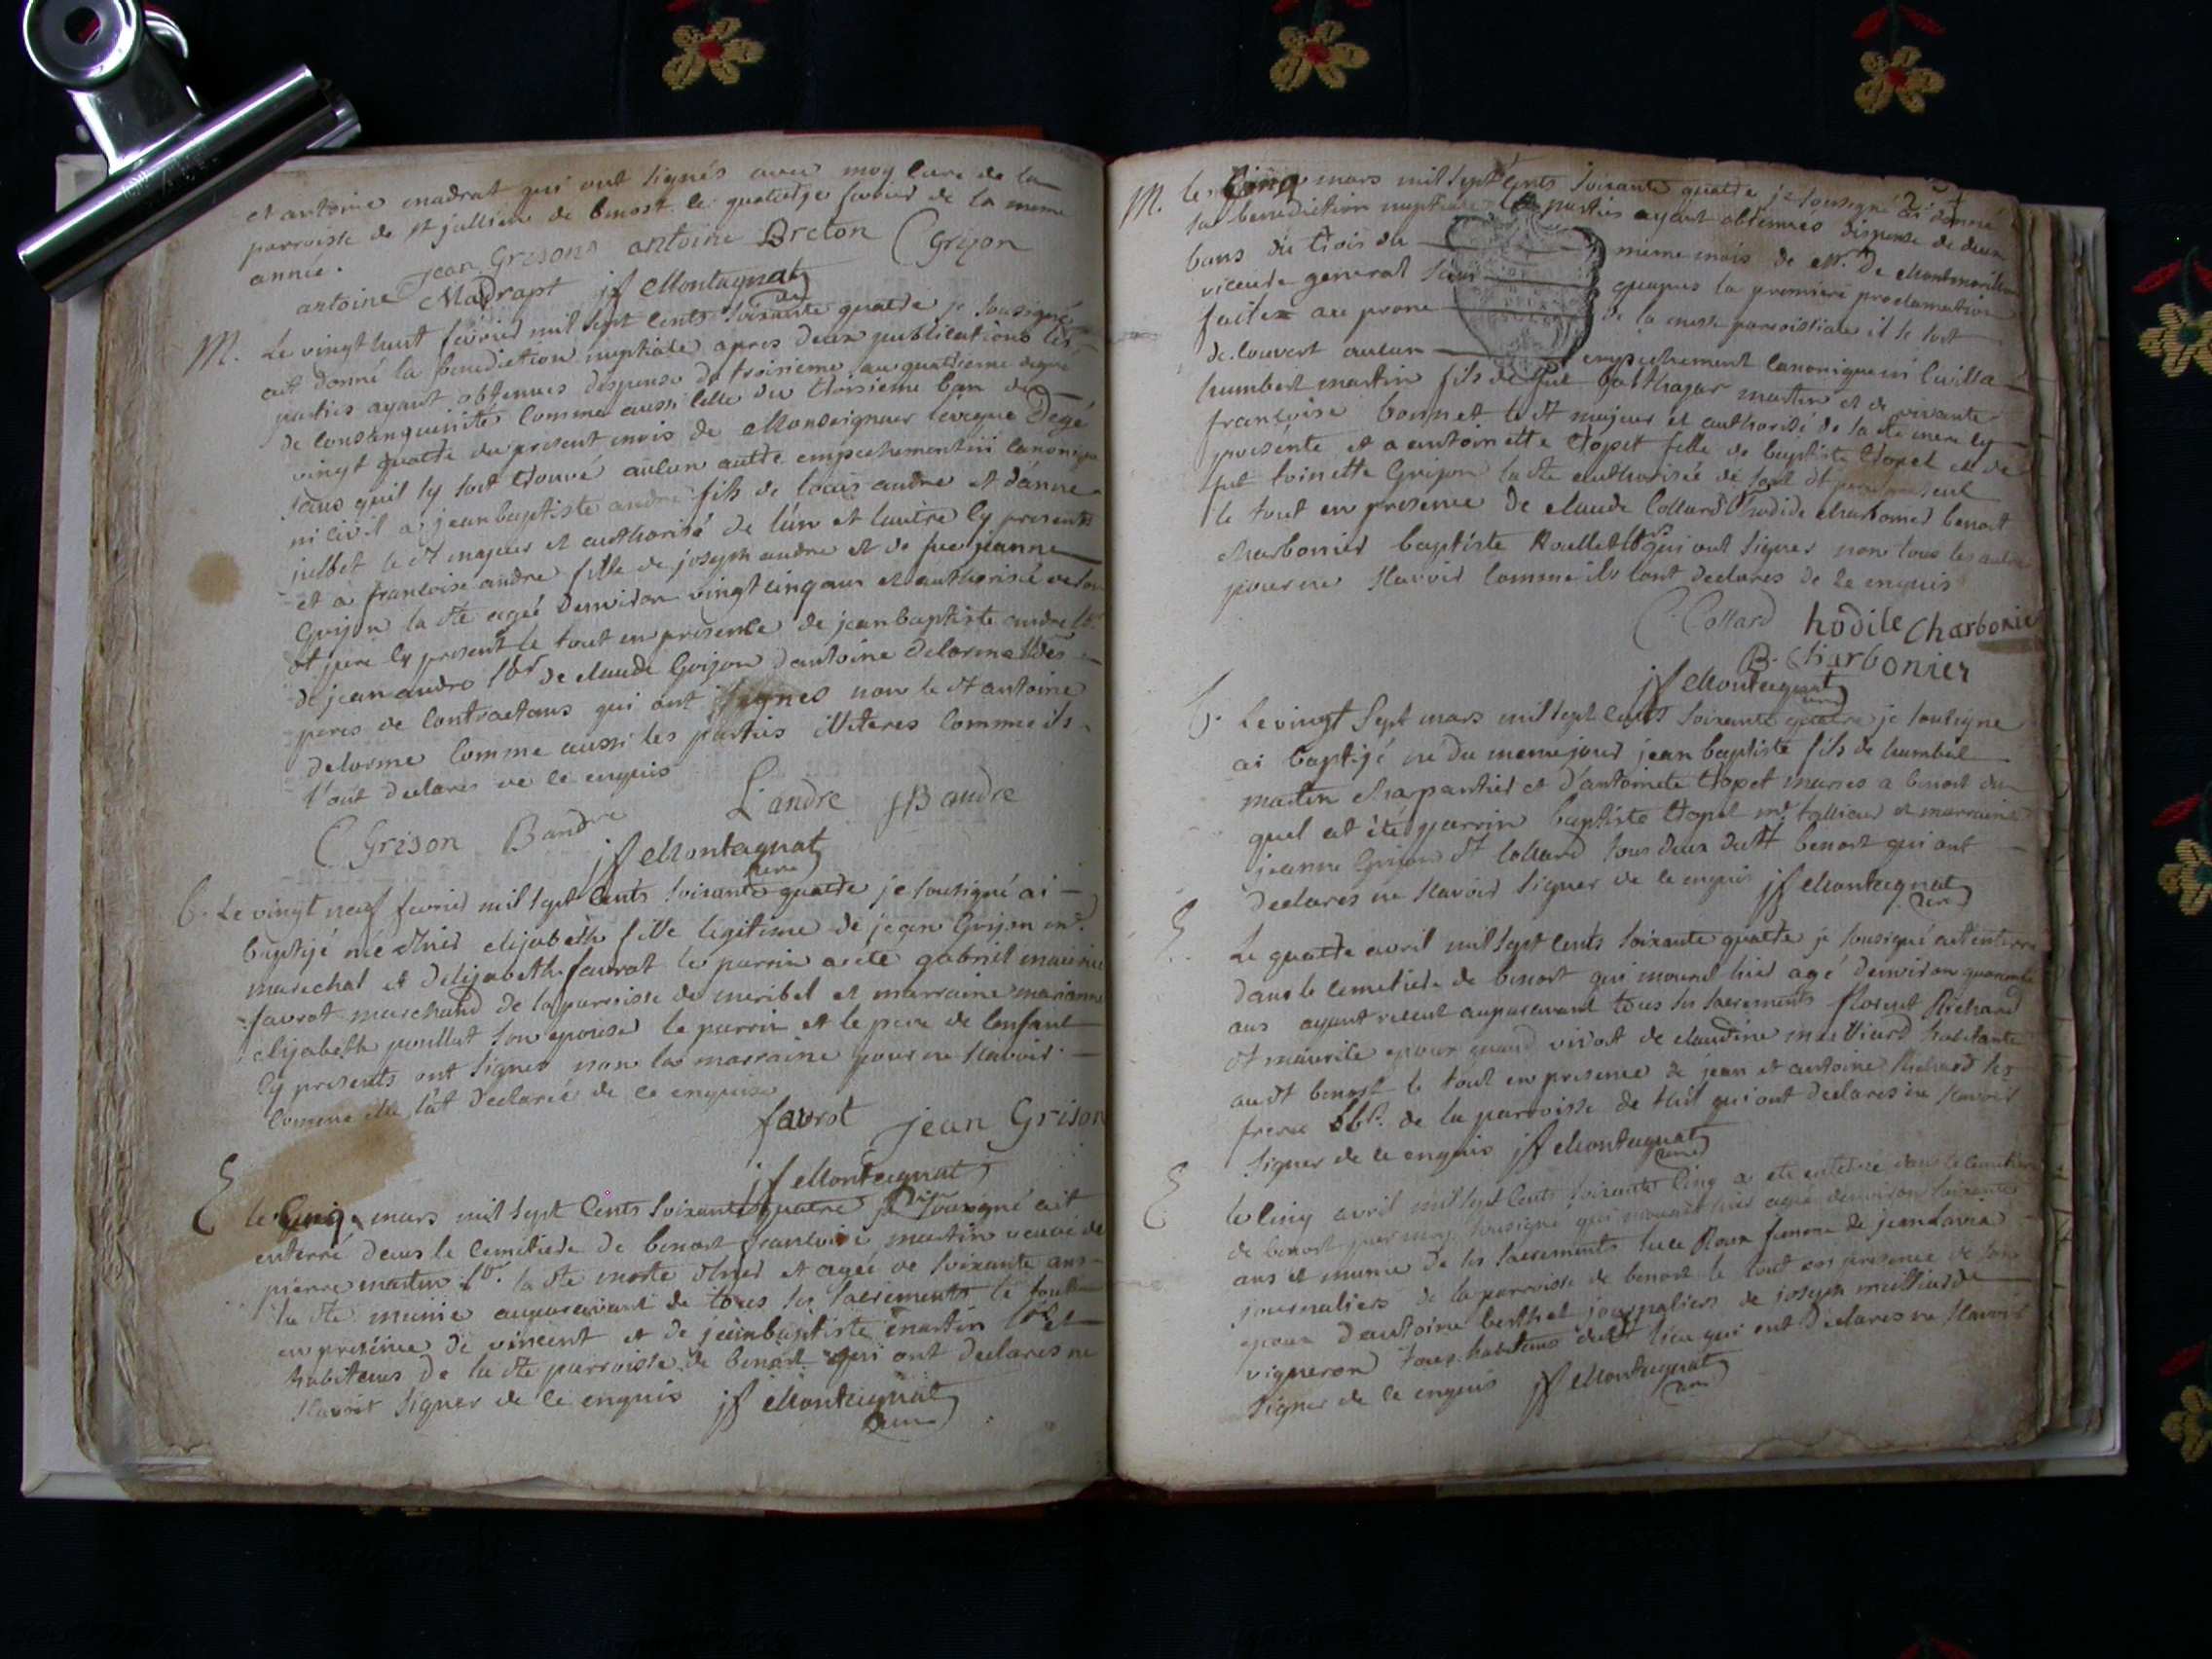 et antoine madrat qui ont signés avec moy curé de la
parroisse de st jullien de benost le quatorze fevrier de la meme
année.
jean Grisons antoine Breton C Grison
antoine Madrapt jf Montagnat
curé
M. Le vingt huit fevrier mil sept cents soixante quatre je sousigné
ait donné la benediction nuptiale apres deux publications les
parties ayant obtenues dispense de troisieme au quatrieme degré
de consanguinité comme aussi celle du troisieme ban du
vingt quatre du present mois de Monseigneur leveque
sans quil sy soit trouvé aucun autre empechement ni canonique
ni civil a jean baptiste andre fils de louis andre et d'anne
juilbet le dt majeur et authorisé de l'un et lautre cy presents
et a francoise andre fille de joseph andre et de fue jeanne
Grison la dte agée denviron vingt cinq ans et authorisée de son
dt pere cy present le tout en presence de jean baptiste andre lbr.
de jean andre lbr de claude Grizon d'antoine delorme
peres de contractans qui ont signes non le dt antoine
delorme comme aussi les parties illiteres comme ils
l'ont declares de ce enquis
L'andre JB andre
C Grison B andre
jf Montagnat
curé
b. Le vingt neuf fevrier mil sept cents soixante quatre je sousigné ai
baptisé née d'hier elizabeth fille legitime de jean Grison mr.
marechal et d'elizabeth favrot le parrin a ete gabriel maurice
favrot marchand de la parroisse de meribel et marraine marianne
elizabeth pouillet son epouse le parrin et le pere de l'enfant
cy presents ont signes non la marraine pour ne scavoir
comme elle l'at declarée de ce enquise
favrot jean Grison
jf Montagnat
E le Cinq mars mil sept cents soixante quatre je sousigné ait
enterré dans le cemetiere de benost francoise martin veuve de
pierre martin lbr. la dte morte d'hier et agée de soixante ans
la dte munie auparavant de tous ses sacrements le tout
en presence de vincent et de jean baptiste martin lbr et
habitans de la dte parroisse de benost qui ont declares ne
scavoir signer de ce enquis jf Montagnat
curé
M. le Cinq mars mil sept cents soixante quatre je sousigné ai donné
la benediction nuptiale les parties ayant obtenues dispense de deux
bans du trois du meme mois de Mr. De Montmorillon
vicaire general sans quapres la premiere proclamation
faites au prone de la messe parroissiale il se soit
decouvert aucun empechement canonique ni civil a
humbert martin fils de feu balthazar martin et de vivante
francoise bonnet le dt majeur et authorisé de sa dte mere cy
presente et a antoinette tropet fille de baptiste tropet et de
fue toinette Grison la dte authorisée de son dt pere present
le tout en presence de claude Collard hodile charbonier benoit
charbonier baptiste Roullet qui ont signes non tous les autres
pour ne scavoir comme ils l'ont declares de ce enquis
C. Collard hodile charbonier
B. charbonier
jf Montagnat
curé
b. Le vingt sept mars mil sept cents soixante quatre je sousigne
ai baptisé ne du meme jour jean baptiste fils de humbert
martin charpantier et d'antoinete tropet maries a benost du
quel at été parrin baptiste tropet mr tallieur et marraine
jeanne Grison dt Collard tous deux dudt benost qui ont
declares ne scavoir signer de ce enquis jf Montagnat
curé
E. Le quatre avril mil sept cents soixante quatre je sousigné ait enterre
dans le cemetiere de benost qui mourut hier agé denviron quarante
ans ayant recent auparavant tous ses sacrements florent Richard
dt maurice epoux quand vivoit de claudine mailliard habitante
au dt benost le tout en presence de jean et antoine Richard ses
freres lbr. de la parroisse de thil qui ont declares ne scavoir
signer de ce enquis jf Montagnat
curé
E le cinq avril mil sept cents soixante cinq a ete enterré dans le cemetiere
de benost par moy sousigné qui mourut hier agée denviron soixante
ans et munie de ses sacrements luce Roux femme de jean
journaliers de la parroisse de benost le tout en presence de son
epoux d'antoine berthet journaliers de joseph mailliard
vigneron tous habitans dudt lieu qui ont declares ne scavoir
signer de ce enquis jf Montagnat
curé